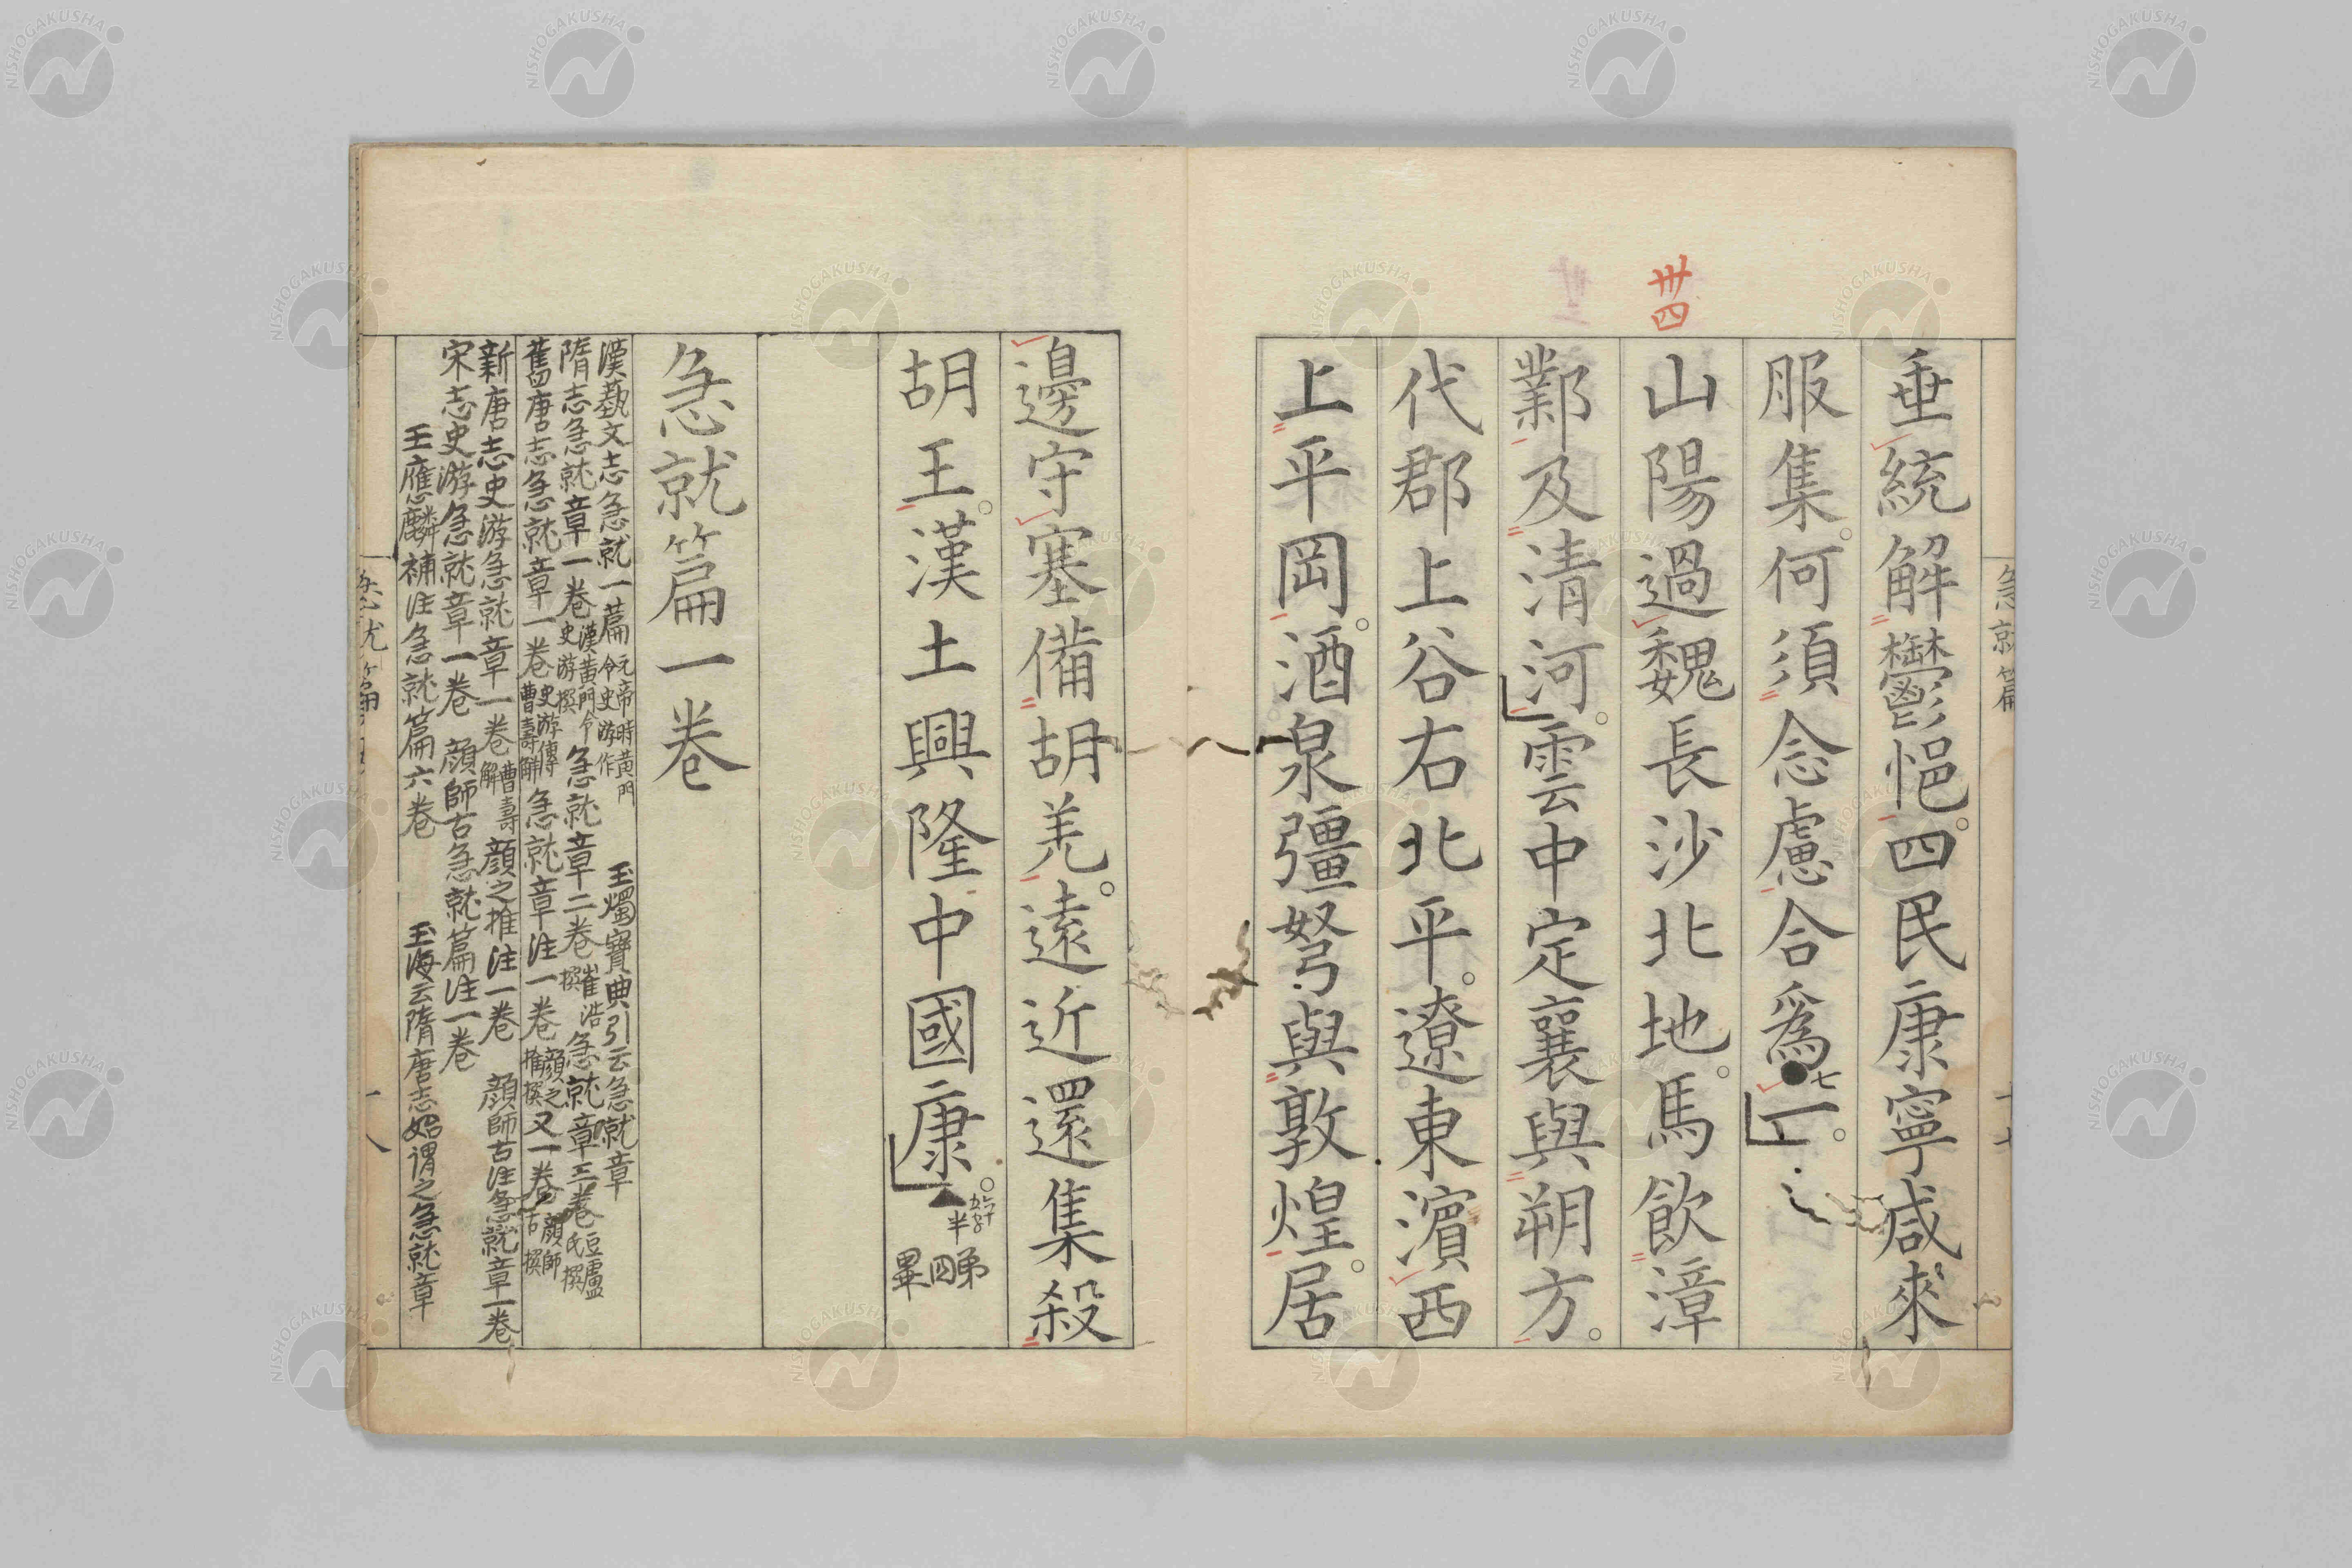 急就篇
十七
垂統解鬱悒。四民康寧咸來
服集。何須念慮合爲七丁。
卅四
山陽過魏長沙北地。馬飲漳
鄴及清河。雲中定襄與朔方。
代郡上谷右北平。遼東濵西
上平岡。酒泉彊弩與敦煌。居
邊守塞備胡羌。遠近還集殺
胡王。漢土興隆中國康。
半
第四畢
急就篇一卷
漢藝文志急就一篇元帝時黄門令史游作 玉燭寶典引云急就章
隋志急就章一卷漢黄門令史游撰急就章二卷崔浩撰急就章三卷豆盧氏撰
舊唐志急就章一卷史游傳曹壽解急就章注一卷顔之推撰又一卷顔師古撰
新唐志史游急就章一卷曹壽解顔之推注一卷 顔師古注急就章一卷
宋志史游急就章一卷 顔師古急就篇注一卷
王應麟補注急就篇六卷 玉海云隋唐志始謂之急就章
急就篇
十八
NISHOGAKUSHA